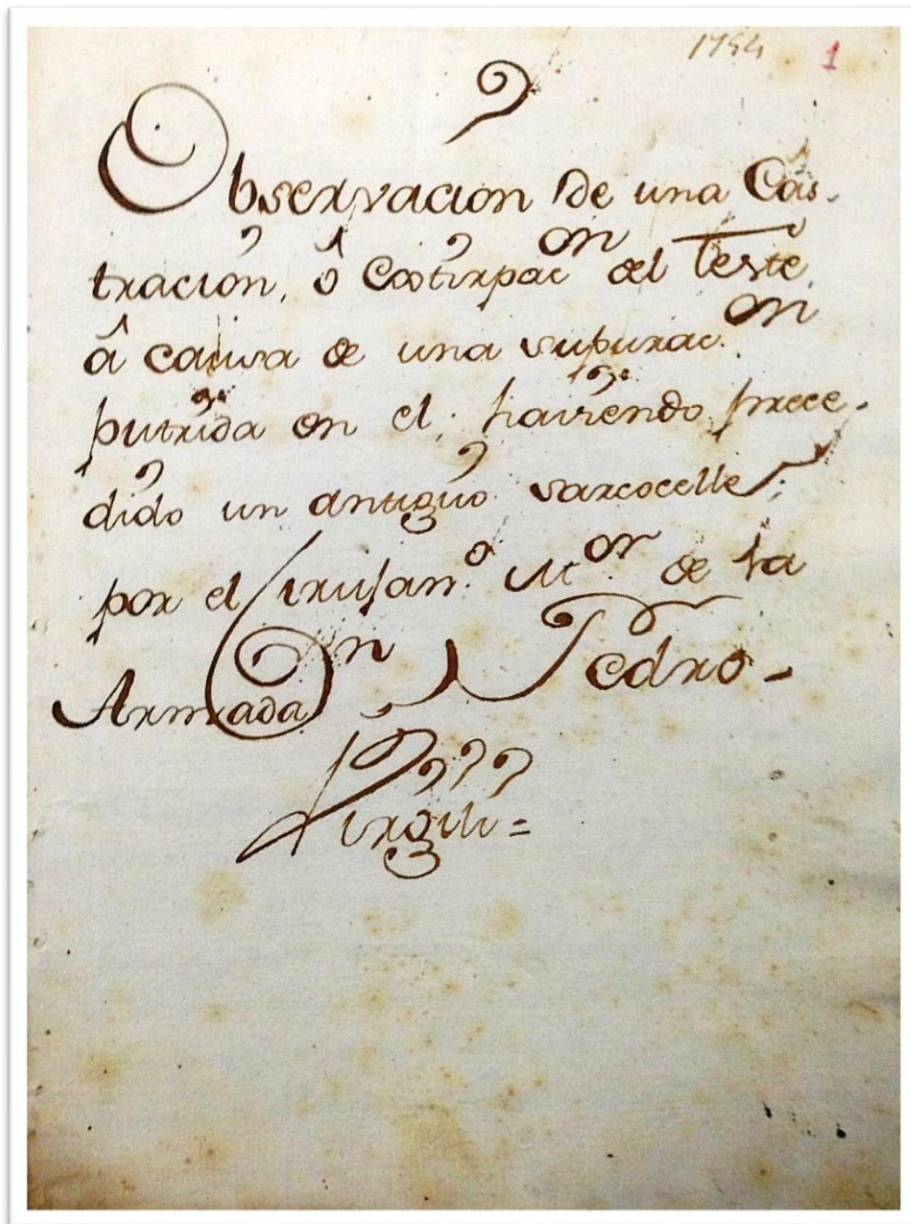 1754 1
Observacion de una Cas-
tracion, ô Extirpac.on del Teste
â causa de una supurac.on
putrida en el; haviendo prece-
dido un antiguo sarcocelle;
por el Cirujan.o M.or de la
Armada Dn Pedro-
Virgili=